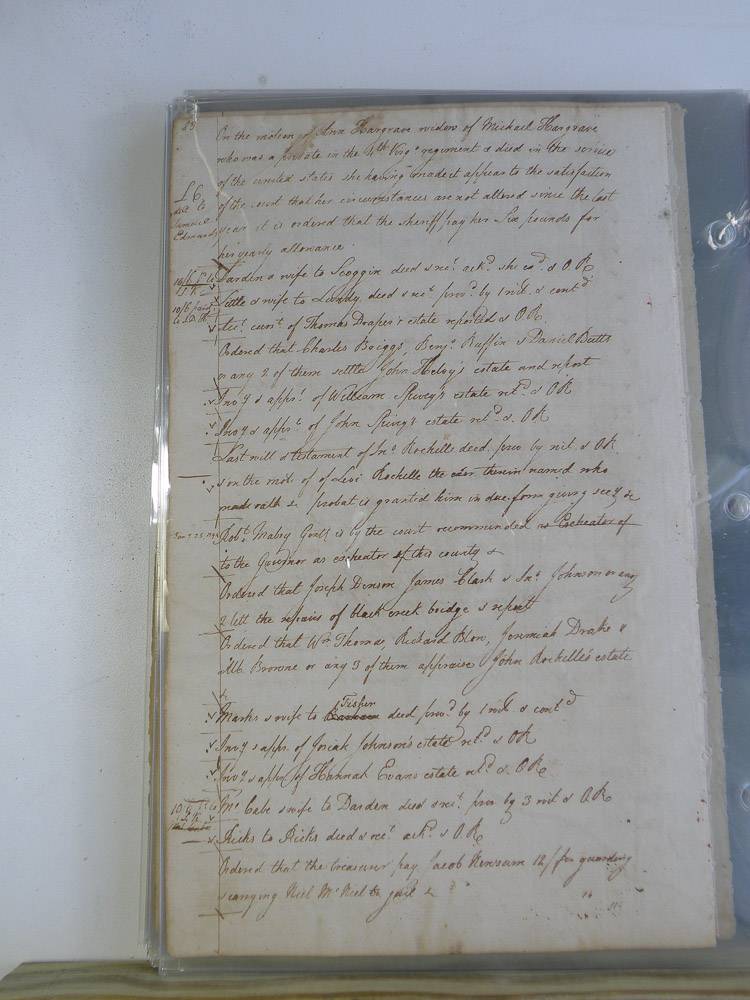 On the motion of Ann Hargrave widow of Michael Hargrave
who was a private in the 4th Virga regiment & died in the service
of the united states she having made it appear to the satisfaction
of the court that her circumstances are not altered since the last
year it is ordered that the sheriff pay her Six pounds for
her yearly allowance
£6
to
Samuel
Edmunds
Darden & wife to Scoggin deed & rect. ackd. she exd. & O.R.
Little & wife to Lundy deed & rect. provd. by 1 wit. & contd
Acct. curt. of Thomas Draper's estate reported & O.R.
Ordered that Charles Briggs, Benja. Ruffin & Daniel Butts
or any 2 of them settle John Helvy's estate and report
Invy & apprt. of William Spivey's estate retd. & O.R
Invy & apprt. of John Spivy's estate retd. & O.R
Last will & testament of Jno. Rochelle deed. prov by wit. & O.R.
& on the mot. of of Levi Rochelle the exor therein named who
made oath & probat is granted him in due form giving secy &
Robt. Mabry Gent is by the court recommended as Escheator of
to the Governor as escheator of this county &
Ordered that Joseph Denson James Clark & Jno. Johnson or any
2 lett the repairs of black creek bridge & report
Ordered that Wm. Thomas, Richard Blow, Jeremiah Drake &
Browne or any 3 of them appraise John Rochelle's estate
&
Fisher
Marks & wife to deed provd by 1 wit & contd
Invy & appr. of Josiah Johnson's estate retd & O.R
Invy & appr. of Hannah Evans estate retd & O.R.
McCabe & wife to Darden deed & rect. prov by 3 wit & O.R.
Ricks to Ricks deed & rect. ackd. & O.R.
Ordered that the treasurer pay Jacob Newsum 12/ for guarding
& carrying Niel McNiel to jail &